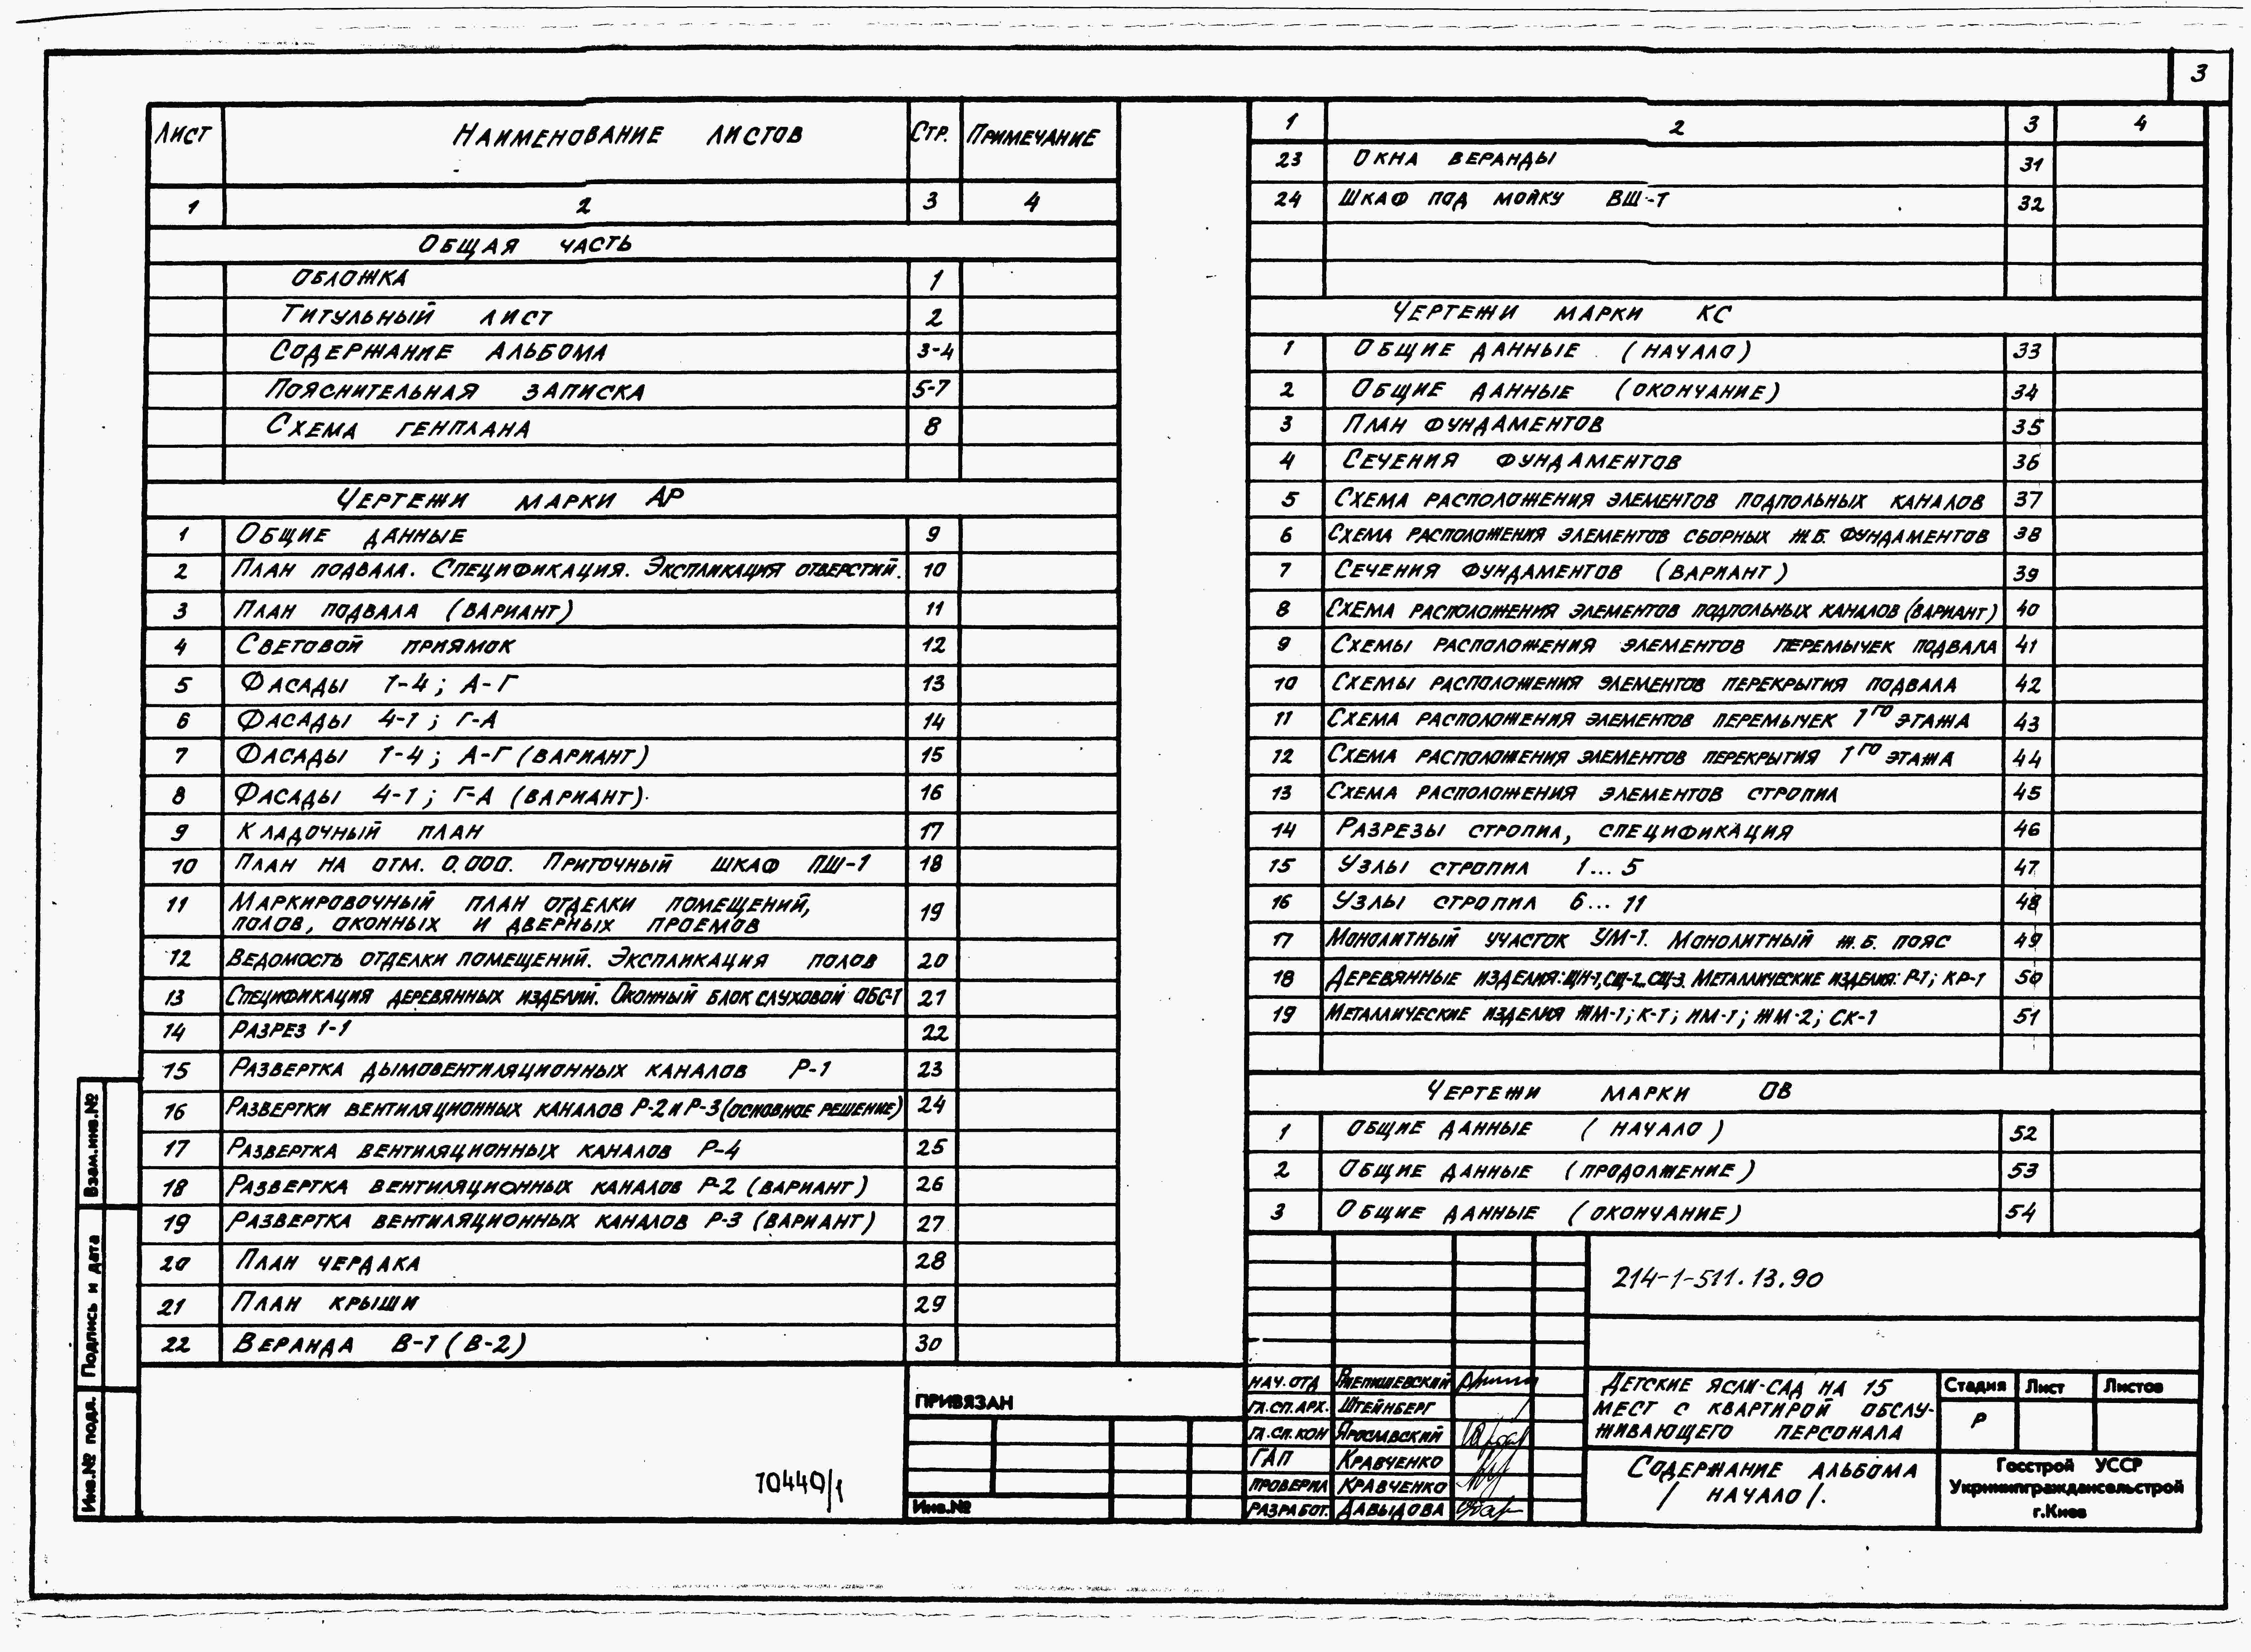 3
Лист Наименование листов Стр. Примечание
1 2 3 4
Общая часть
Обложка 1
Титульный лист 2
Содержание альбома 3-4
Пояснительная записка 5-7
Схема генплана 8
Чертежи марки АР
1 Общие данные 9
2 План подвала. Спецификация. Экспликация отверстий. 10
3 План подвала (вариант) 11
4 Световой приямок 12
5 Фасады 1-4; А-Г 13
6 Фасады 4-1; Г-А 14
7 Фасады 1-4; А-Г (вариант) 15
8 Фасады 4-1; Г-А (вариант). 16
9 Кладочный план 17
10 План на отм. 0.000. Приточный шкаф ПШ-1 18
11 Маркировочный план отделки помещений, 19
полов, оконных и дверных проемов
12 Ведомость отделки помещений. Экспликация полов 20
13 Спецификация деревянных изделий. Оконный блок слуховой ОБС-1 21
14 Разрез 1-1 22
15 Развертка дымовентиляционных каналов Р-1 23
16 Развертки вентиляционных каналов Р-2 и Р-3 (основное решение) 24
17 Развертка вентиляционных каналов Р-4 25
18 Развертка вентиляционных каналов Р-2 (вариант) 26
19 Развертка вентиляционных каналов Р-3 (вариант) 27
20 План чердака 28
21 План крыши 29
22 Веранда В-1 (В-2) 30
1 2 3 4
23 Окна веранды 31
24 Шкаф под мойку ВШ-1 32
Чертежи марки КС
1 Общие данные (начало) 33
2 Общие данные (окончание) 34
3 План фундаментов 35
4 Сечения фундаментов 36
5 Схема расположения элементов подпольных каналов 37
6 Схема расположения элементов сборных ж.б. фундаментов 38
7 Сечения фундаментов (вариант) 39
8 Схема расположения элементов подпольных каналов (вариант) 40
9 Схемы расположения элементов перемычек подвала 41
10 Схемы расположения элементов перекрытия подвала 42
11 Схема расположения элементов перемычек 1го этажа 43
12 Схема расположения элементов перекрытия 1го этажа 44
13 Схема расположения элементов стропил 45
14 Разрезы стропил, спецификация 46
15 Узлы стропил 1...5 47
16 Узлы стропил 6...11 48
17 Монолитный участок УМ-1. Монолитный ж.б. пояс 49
18 Деревянные изделия: ЩН-1, СЩ-2, СЩ-3. Металлические изделия: Р-1; КР-1 50
19 Металлические изделия ЖМ-1; К-1; НМ-1; ЖМ-2; СК-1 51
Чертежи марки ОВ
1 Общие данные (начало) 52
2 Общие данные (продолжение) 53
3 Общие данные (окончание) 54
214-1-511.13.90
Нач. отд
Гл. сп. арх. Штейнберг
Гл. сп. кон Ярославский
ГАП Кравченко
Проверил Кравченко
Разработ. Давыдова
Детские ясли-сад на 15
мест с квартирой обслу-
живающего персонала
Стадия Лист Листов
Р
Содержание альбома
/ начало /.
Госстрой УССР
Укрниипграждансельстрой
г.Киев
Привязан
Инв.№
10440/1
Взам.инв.№
Подпись и дата
Инв.№ подл.